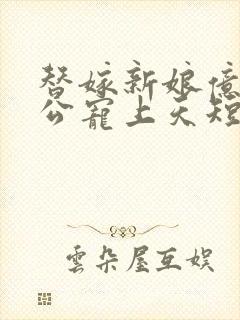 替嫁新娘億
公寵上天短
雲朵屋互娱